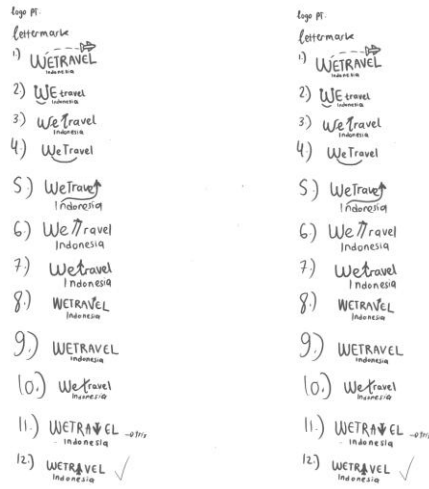 logo PT.
lettermark
1) WETRAVEL
Indonesia
2) WE travel
Indonesia
3) We Travel
Indonesia
4.) WeTravel
5.) WeTravel
Indonesia
6.) We Travel
Indonesia
7.) Wetravel
Indonesia
8.) WETRAVEL
Indonesia
9.) WETRAVEL
Indonesia
10.) Wetravel
Indonesia
11.) WETRAVEL
Indonesia
12.) WETRAVEL
Indonesia
logo PT.
lettermark
1) WETRAVEL
Indonesia
2) WE travel
Indonesia
3) We Travel
Indonesia
4.) WeTravel
5.) WeTravel
Indonesia
6.) We Travel
Indonesia
7.) Wetravel
Indonesia
8.) WETRAVEL
Indonesia
9.) WETRAVEL
Indonesia
10.) Wetravel
Indonesia
11.) WETRAVEL
Indonesia
12.) WETRAVEL
Indonesia